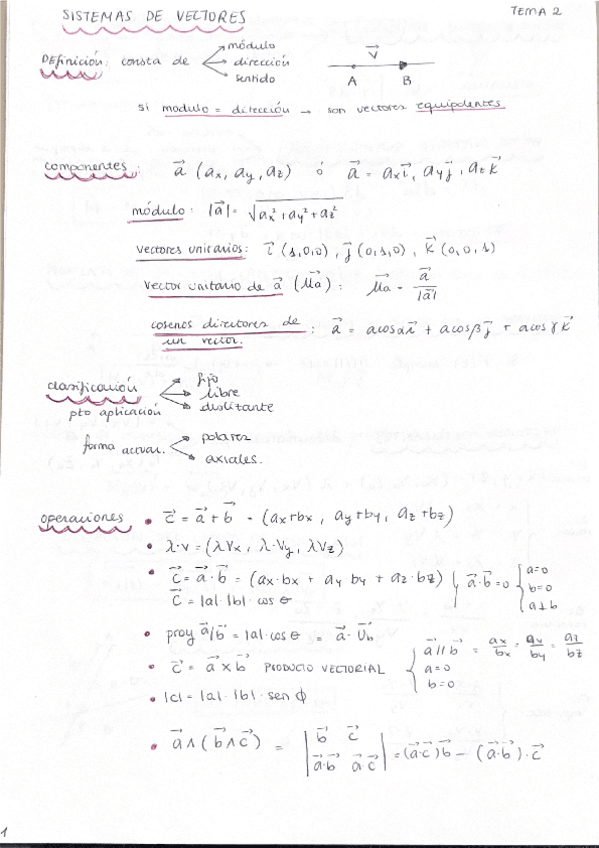 SISTEMAS DE VECTORES
TEMA 2
Definición: consta de
módulo
dirección
sentido
V⃗
A B
si modulo = dirección → son vectores equipolentes
componentes:
a⃗ (ax, ay, az) o a⃗ = axi⃗, ayj⃗, azk⃗
módulo: |a⃗| = √ax² + ay² + az²
vectores unitarios: i⃗ (1,0,0), j⃗ (0,1,0), k⃗ (0,0,1)
vector unitario de a⃗ (μa⃗): μ⃗a = a⃗ / |a⃗|
cosenos directores de un vector.: a⃗ = a cosα i⃗ + a cosβ j⃗ + a cosγ k⃗
clasificación
pto aplicación
fijo
libre
deslizante
forma actuar.
polares
axiales.
operaciones
• c⃗ = a⃗ + b⃗ = (ax+bx, ay+by, az+bz)
• λ·v = (λVx, λ·Vy, λVz)
• c⃗ = a⃗ · b⃗ = (ax·bx + ay by + az·bz)
c⃗ = |a|·|b|·cos θ
a⃗·b⃗ = 0
a=0
b=0
a⊥b
• proy a⃗/b⃗ = |a|·cos θ = a⃗·U⃗b
• c⃗ = a⃗ x b⃗ PRODUCTO VECTORIAL
a⃗ // b⃗ = ax/bx = ay/by = az/bz
a=0
b=0
• |c| = |a|·|b|·sen ϕ
• a⃗ ∧ (b⃗ ∧ c⃗) = | b⃗ c⃗ |
| a⃗·b⃗ a⃗·c⃗ | = (a⃗·c⃗)b⃗ − (a⃗·b⃗)·c⃗
1